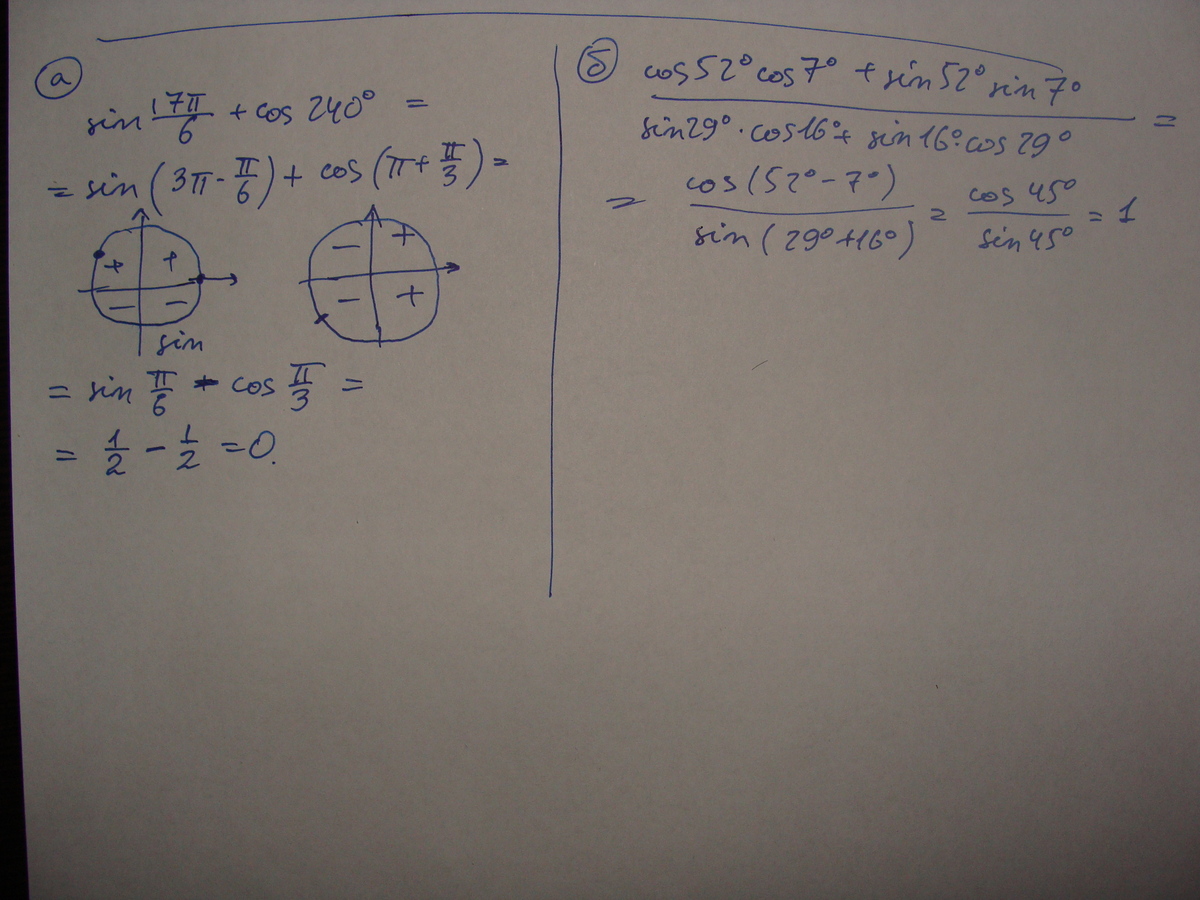 а
sin 17π/6 + cos 240° =
= sin (3π - π/6) + cos (π + π/3) =
+ +
− −
sin
− +
− +
= sin π/6 - cos π/3 =
= 1/2 - 1/2 = 0.
б
(cos 52° cos 7° + sin 52° sin 7°)/(sin 29° · cos 16° + sin 16° · cos 29°) =
= cos (52° - 7°)/sin (29° + 16°) = cos 45°/sin 45° = 1